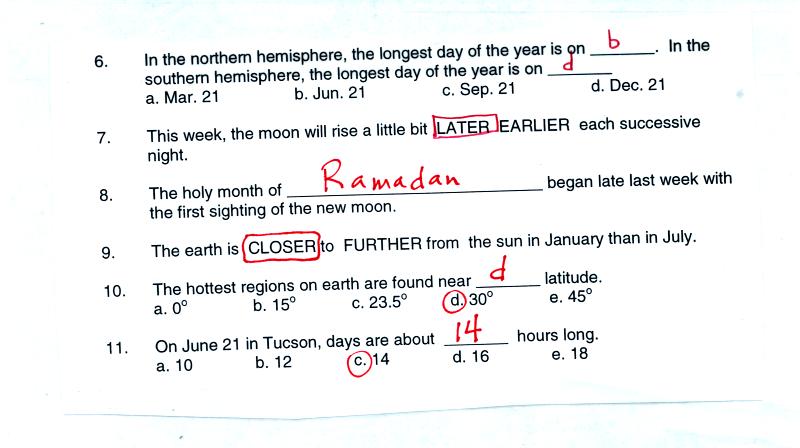 6. In the northern hemisphere, the longest day of the year is on b. In the
southern hemisphere, the longest day of the year is on d
a. Mar. 21 b. Jun. 21 c. Sep. 21 d. Dec. 21
7. This week, the moon will rise a little bit LATER EARLIER each successive
night.
8. The holy month of Ramadan began late last week with
the first sighting of the new moon.
9. The earth is CLOSER to FURTHER from the sun in January than in July.
10. The hottest regions on earth are found near d latitude.
a. 0° b. 15° c. 23.5° d. 30° e. 45°
11. On June 21 in Tucson, days are about 14 hours long.
a. 10 b. 12 c. 14 d. 16 e. 18